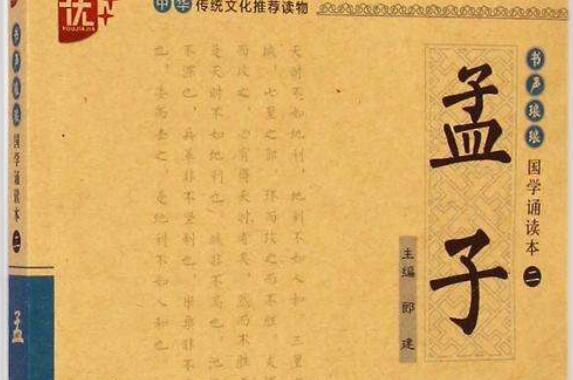 优+
YOUJIAJIA
中华传统文化推荐读物
书声琅琅
国学诵读本 二
孟子
主编 郎建
天时不如地利，地利不如人和 三里
城，七里之郭，环而攻之而不胜。夫环
而攻之，必有得天时者矣，然而不胜
是天时不如地利也 城非不高也，池
不深也，兵革非不坚利也，米粟非
也，委而去之，是地利不如人和也
书声琅琅 国学诵读本 二
孟